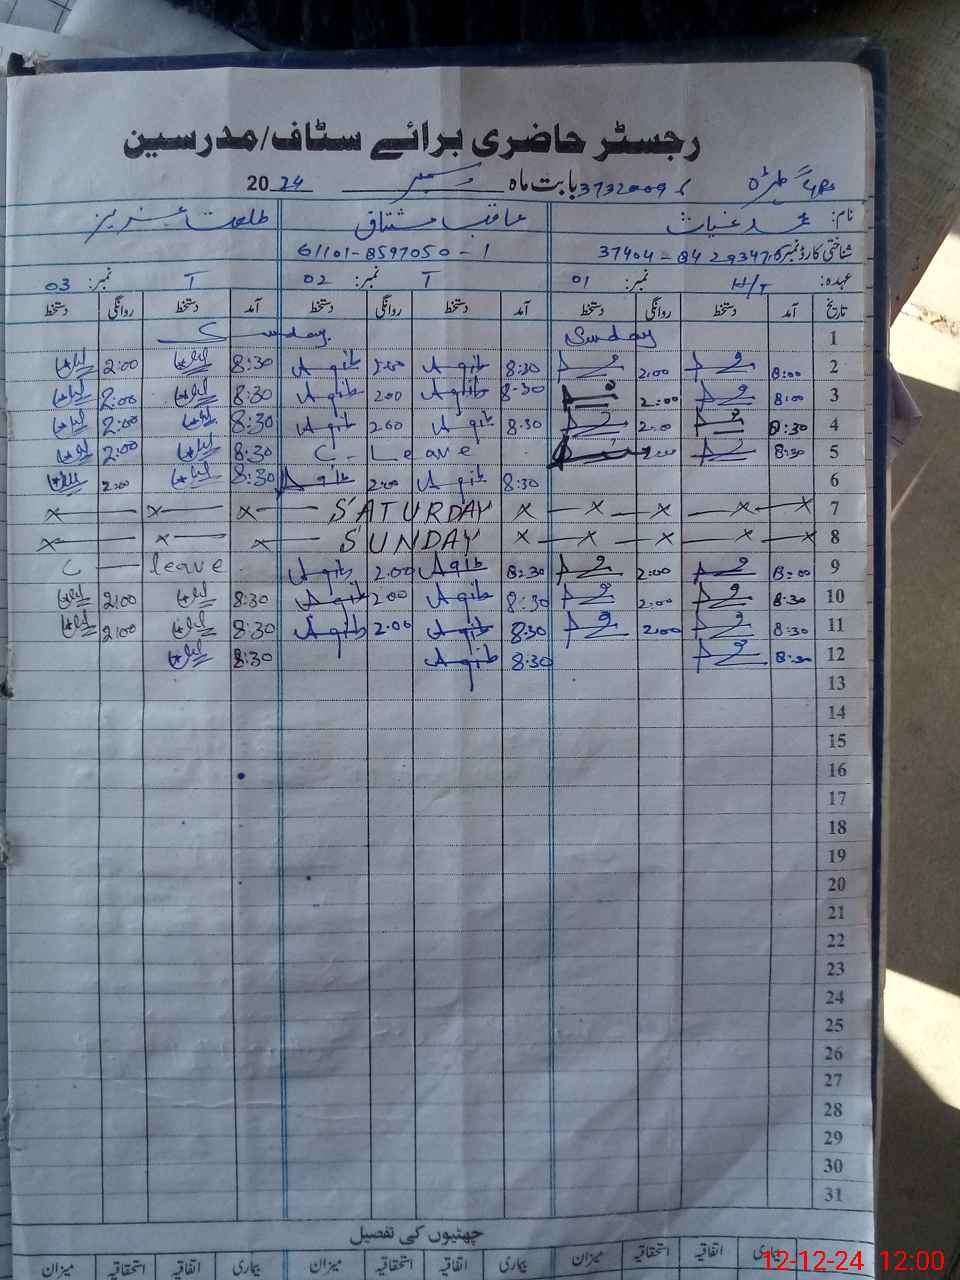 رجسٹر حاضری برائے سٹاف/مدرسین
37320009 بابت ماہ دسمبر 2024
نام: محمد غیاث عاقب مشتاق طلعت عزیز
شناختی کارڈ نمبر 61101-8597050-1
عہدہ: H/T نمبر: 01 T نمبر: 02 T نمبر: 03
تاریخ آمد دستخط روانگی دستخط آمد دستخط روانگی دستخط آمد دستخط روانگی دستخط
1 Sunday Sunday
2 8:00 2:00 8:30 Aqib 2:00 Aqib 8:30 2:00
3 8:00 2:00 8:30 Aqib 2:00 Aqib 8:30 2:00
4 8:30 2:00 8:30 Aqib 2:00 Aqib 8:30 2:00
5 8:30 C-Leave 8:30 2:00
6 8:30 Aqib 2:00 Aqib 8:30 2:00
7 x x x x SATURDAY x x x
8 x x x x SUNDAY x x x
9 8:00 2:00 8:30 Aqib 2:00 Aqib C — leave
10 8:30 2:00 8:30 Aqib 2:00 Aqib 8:30 2:00
11 8:30 2:00 8:30 Aqib 2:00 Aqib 8:30 2:00
12 8:30 8:30 Aqib 8:30
13
14
15
16
17
18
19
20
21
22
23
24
25
26
27
28
29
30
31
چھٹیوں کی تفصیل
بیماری اتفاقیہ استحقاقیہ میزان بیماری اتفاقیہ استحقاقیہ میزان بیماری اتفاقیہ استحقاقیہ میزان
12-12-24 12:00